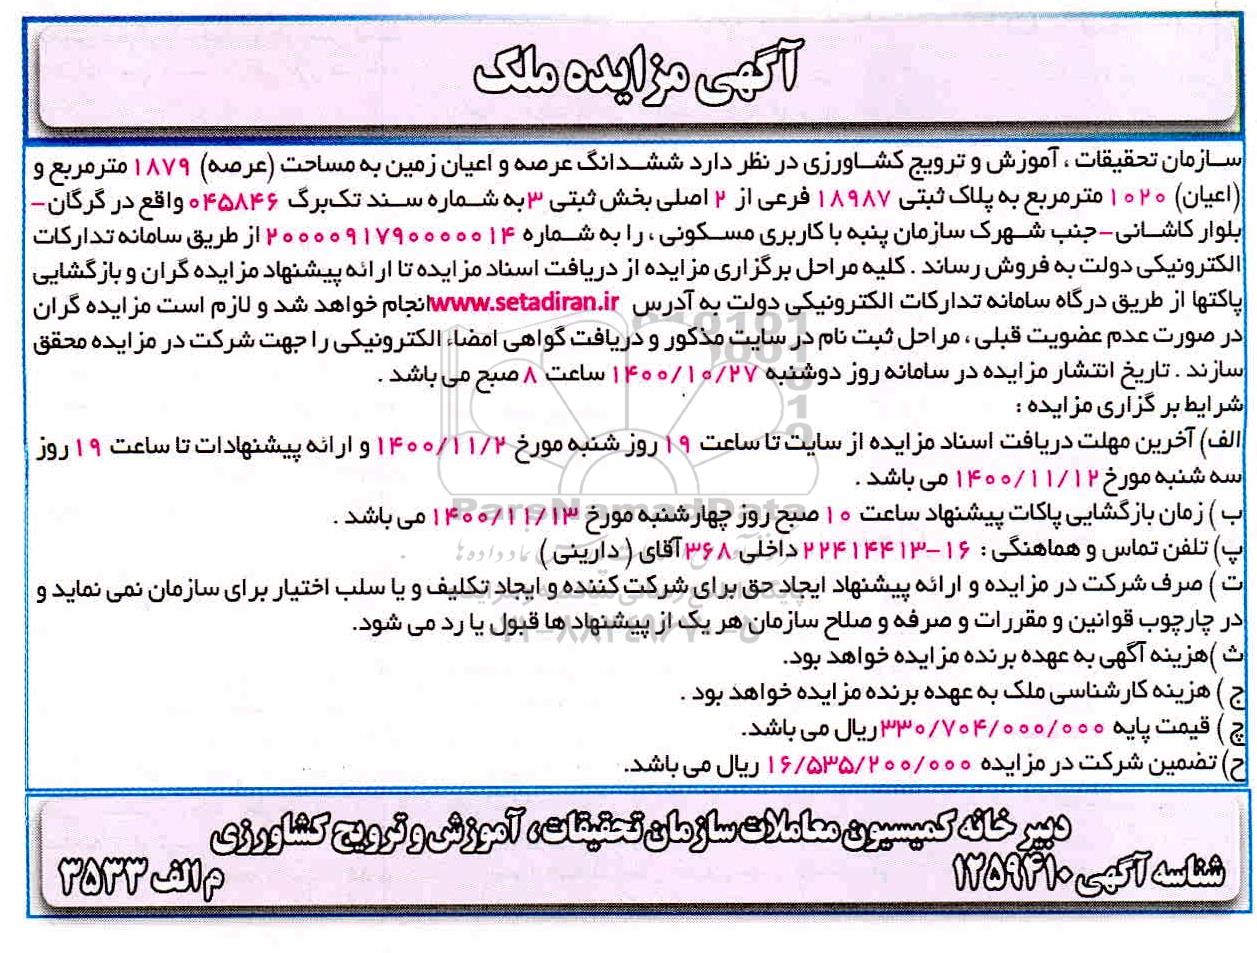 آگهی مزایده ملک
سازمان تحقیقات ، آموزش و ترویج کشاورزی در نظر دارد ششدانگ عرصه و اعیان زمین به مساحت (عرصه) ۱۸۷۹ مترمربع و
(اعیان) ۱۰۲۰ مترمربع به پلاک ثبتی ۱۸۹۸۷ فرعی از ۲ اصلی بخش ثبتی ۳ به شماره سند تک‌برگ ۰۴۵۸۴۶ واقع در گرگان-
بلوار کاشانی-جنب شهرک سازمان پنبه با کاربری مسکونی ، را به شماره ۲۰۰۰۰۹۱۷۹۰۰۰۰۰۱۴ از طریق سامانه تدارکات
الکترونیکی دولت به فروش رساند . کلیه مراحل برگزاری مزایده از دریافت اسناد مزایده تا ارائه پیشنهاد مزایده گران و بازگشایی
پاکتها از طریق درگاه سامانه تدارکات الکترونیکی دولت به آدرس www.setadiran.ir انجام خواهد شد و لازم است مزایده گران
در صورت عدم عضویت قبلی ، مراحل ثبت نام در سایت مذکور و دریافت گواهی امضاء الکترونیکی را جهت شرکت در مزایده محقق
سازند . تاریخ انتشار مزایده در سامانه روز دوشنبه ۱۴۰۰/۱۰/۲۷ ساعت ۸ صبح می باشد .
شرایط بر گزاری مزایده :
الف) آخرین مهلت دریافت اسناد مزایده از سایت تا ساعت ۱۹ روز شنبه مورخ ۱۴۰۰/۱۱/۲ و ارائه پیشنهادات تا ساعت ۱۹ روز
سه شنبه مورخ ۱۴۰۰/۱۱/۱۲ می باشد .
ب ) زمان بازگشایی پاکات پیشنهاد ساعت ۱۰ صبح روز چهارشنبه مورخ ۱۴۰۰/۱۱/۱۳ می باشد .
پ) تلفن تماس و هماهنگی : ۱۶-۲۲۴۱۴۴۱۳ داخلی ۳۶۸ آقای ( دارینی )
ت ) صرف شرکت در مزایده و ارائه پیشنهاد ایجاد حق برای شرکت کننده و ایجاد تکلیف و یا سلب اختیار برای سازمان نمی نماید و
در چارچوب قوانین و مقررات و صرفه و صلاح سازمان هر یک از پیشنهاد ها قبول یا رد می شود.
ث )هزینه آگهی به عهده برنده مزایده خواهد بود.
ج ) هزینه کارشناسی ملک به عهده برنده مزایده خواهد بود .
چ ) قیمت پایه ۳۳۰/۷۰۴/۰۰۰/۰۰۰ ریال می باشد.
ح) تضمین شرکت در مزایده ۱۶/۵۳۵/۲۰۰/۰۰۰ ریال می باشد.
دبیر خانه کمیسیون معاملات سازمان تحقیقات ، آموزش و ترویج کشاورزی
شناسه آگهی ۱۲۵۹۴۱۰
م الف ۳۵۳۳
ParsNamadData